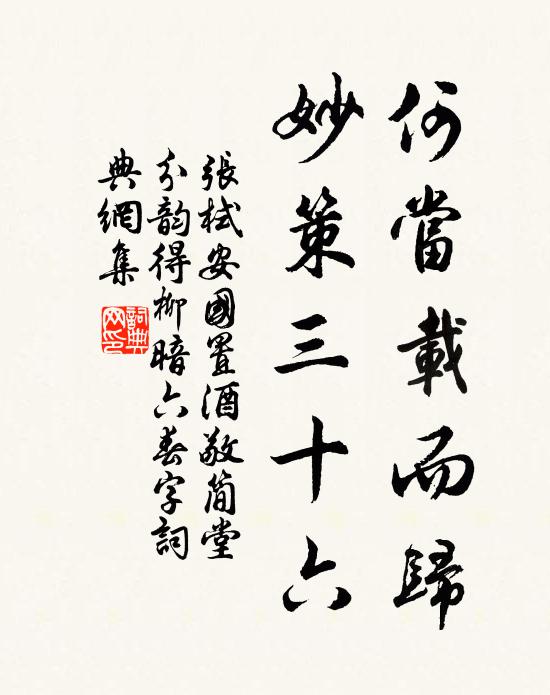 何當載而歸
妙策三十六
張栻安國置酒敬简堂
分韵得柳暗六春字詞
典網集
詞典
网印